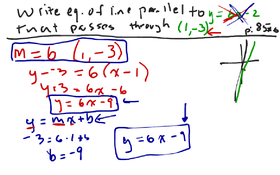 Write eq. of line parallel to y = 6x - 2
that passes through (1, -3)
m = 6 (1, -3)
y - -3 = 6(x - 1)
y + 3 = 6x - 6
y = 6x - 9
y = mx + b
-3 = 6·1 + b
b = -9
y = 6x - 9